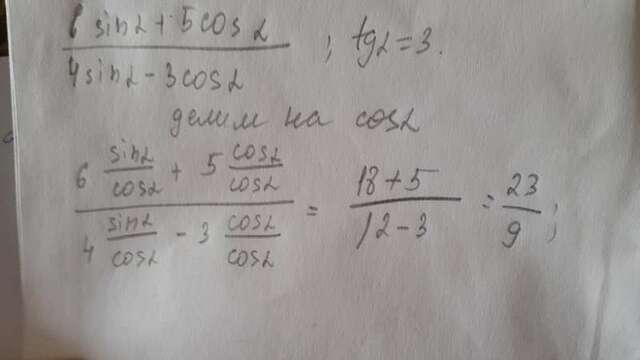 6 sinα + 5cosα / 4sinα - 3cosα ; tgα = 3.
делим на cosα
6 sinα/cosα + 5 cosα/cosα / 4 sinα/cosα - 3 cosα/cosα = 18+5 / 12-3 = 23/9 ;